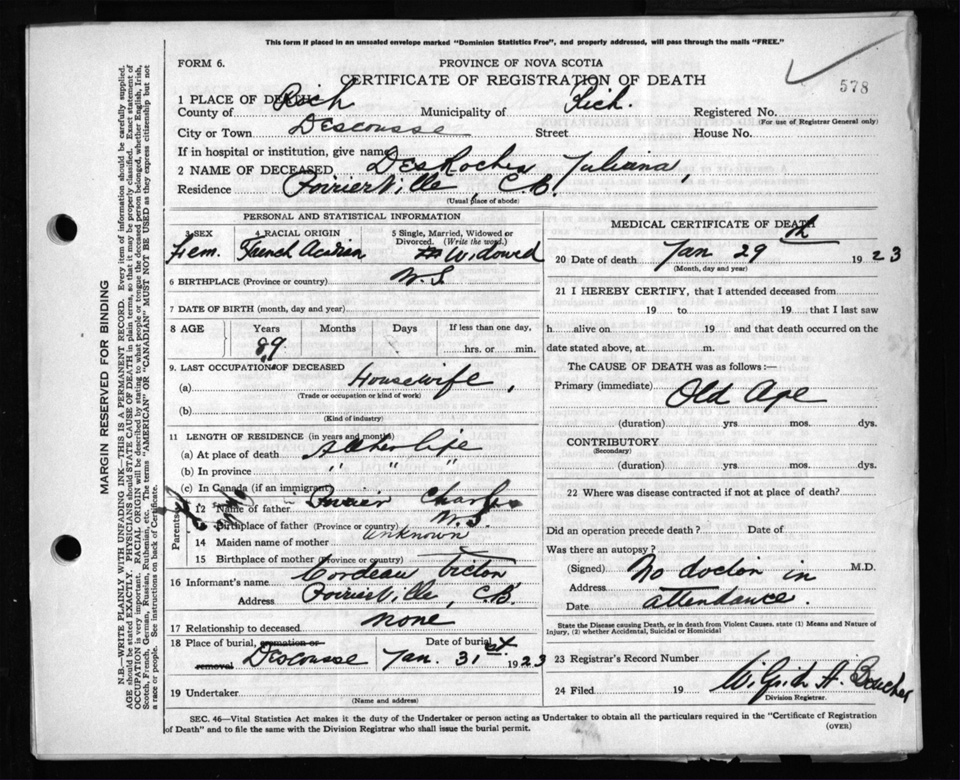 This form if placed in an unsealed envelope marked "Dominion Statistics Free", and properly addressed, will pass through the mails "FREE."
FORM 6.
PROVINCE OF NOVA SCOTIA
CERTIFICATE OF REGISTRATION OF DEATH
578
1 PLACE OF DEATH
County of Rich Municipality of Rich. Registered No.
(For use of Registrar General only)
City or Town Descousse Street House No.
If in hospital or institution, give name
2 NAME OF DECEASED DesRoches Juliana,
Residence PoirierVille, C.B.
(Usual place of abode)
PERSONAL AND STATISTICAL INFORMATION
3 SEX 4 RACIAL ORIGIN 5 Single, Married, Widowed or Divorced. (Write the word.)
Fem. French Acadian Widowed
6 BIRTHPLACE (Province or country) N.S
7 DATE OF BIRTH (month, day and year)
8 AGE Years Months Days If less than one day,
89 hrs. or min.
9. LAST OCCUPATION OF DECEASED
(a) Housewife,
(Trade or occupation or kind of work)
(b)
(Kind of industry)
11 LENGTH OF RESIDENCE (in years and months)
(a) At place of death All her life
(b) In province " " "
(c) In Canada (if an immigrant)
Parents
12 Name of father Poirier Charles
13 Birthplace of father (Province or country) N.S
14 Maiden name of mother unknown
15 Birthplace of mother (Province or country)
16 Informant's name Cordeau Victor
Address PoirierVille, C.B.
17 Relationship to deceased none
18 Place of burial, cremation or removal Descousse Date of burial Jan. 31st 1923
19 Undertaker
(Name and address)
MEDICAL CERTIFICATE OF DEATH
20 Date of death Jan 29th 1923
(Month, day and year)
21 I HEREBY CERTIFY, that I attended deceased from
19 to 19 that I last saw
h alive on 19 and that death occurred on the
date stated above, at m.
The CAUSE OF DEATH was as follows:—
Primary (immediate) Old Age
(duration) yrs. mos. dys.
CONTRIBUTORY
(Secondary)
(duration) yrs. mos. dys.
22 Where was disease contracted if not at place of death?
Did an operation precede death? Date of
Was there an autopsy?
(Signed) No doctor in M.D.
Address attendance.
Date
State the Disease causing Death, or in death from Violent Causes, state (1) Means and Nature of Injury, (2) whether Accidental, Suicidal or Homicidal
23 Registrar's Record Number
24 Filed 19 Wilfrid A. Boucher
Division Registrar.
SEC. 46—Vital Statistics Act makes it the duty of the Undertaker or person acting as Undertaker to obtain all the particulars required in the "Certificate of Registration
of Death" and to file the same with the Division Registrar who shall issue the burial permit.
(OVER)
MARGIN RESERVED FOR BINDING
N.B.—WRITE PLAINLY WITH UNFADING INK—THIS IS A PERMANENT RECORD. Every item of information should be carefully supplied.
AGE should be stated EXACTLY. PHYSICIANS should STATE CAUSE OF DEATH in plain terms, so that it may be properly classified. Exact statement of
OCCUPATION is very important. RACIAL ORIGIN will be described by stating to what people or tongue the deceased person belonged, whether English, Irish,
Scotch, French, German, Russian, Ruthenian, etc. The terms "AMERICAN" OR "CANADIAN" MUST NOT BE USED as they express citizenship but not
a race or people. See instructions on back of Certificate.